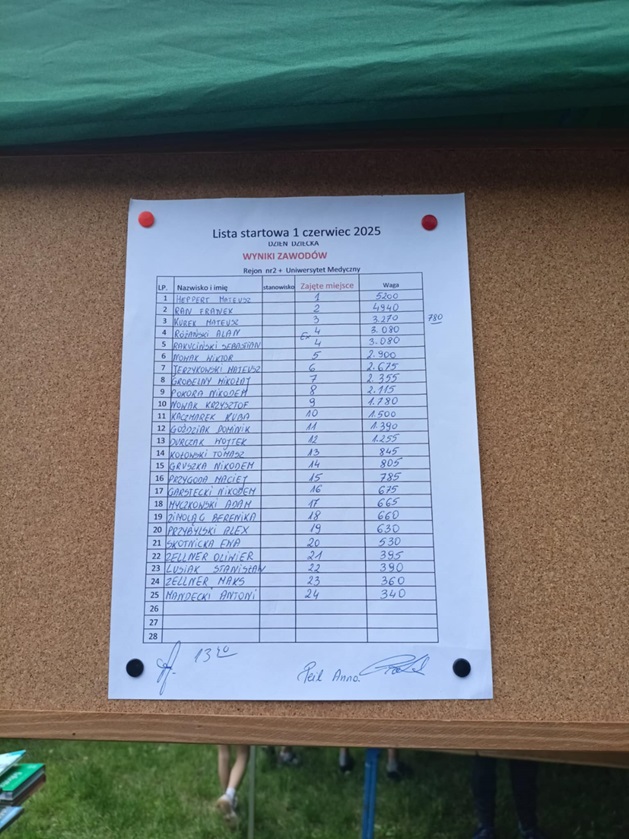 Lista startowa 1 czerwiec 2025
DZIEŃ DZIECKA
WYNIKI ZAWODÓW
Rejon nr2 + Uniwersytet Medyczny
LP. Nazwisko i imię stanowisko Zajęte miejsce Waga
1 HEPPERT MATEUSZ 1 5200
2 RAN FRANEK 2 4940
3 KUREK MATEUSZ 3 3.270 780
4 RÓŻAŃSKI ALAN 4 3.080
5 RATYCIŃSKI SEBASTIAN 4 3.080
6 NOWAK WIKTOR 5 2.900
7 JERZYKOWSKI MATEUSZ 6 2.675
8 GROBELNY MIKOŁAJ 7 2.355
9 POKORA NIKODEM 8 2.115
10 NOWAK KRZYSZTOF 9 1.780
11 KACZMAREK KUBA 10 1.500
12 GOŹDZIAK DOMINIK 11 1.390
13 DURCZAK WOJTEK 12 1.255
14 KOTOWSKI TOMASZ 13 845
15 GRUSZKA NIKODEM 14 805
16 PRZYGODA MACIEJ 15 785
17 GARSTECKI NIKODEM 16 675
18 MYCZKOWSKI ADAM 17 665
19 ZIMOLĄG BERENIKA 18 660
20 PRZYBYLSKI ALEX 19 630
21 SKOTNICKA EWA 20 530
22 ZELLNER OLIWIER 21 395
23 LUSIAK STANISŁAW 22 390
24 ZELLNER MAKS 23 360
25 MANDECKI ANTONI 24 340
26
27
28
13 40
Peil Anna